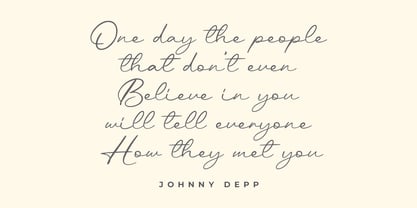 One day the people
that don't even
Believe in you
will tell everyone
How they met you
JOHNNY DEPP